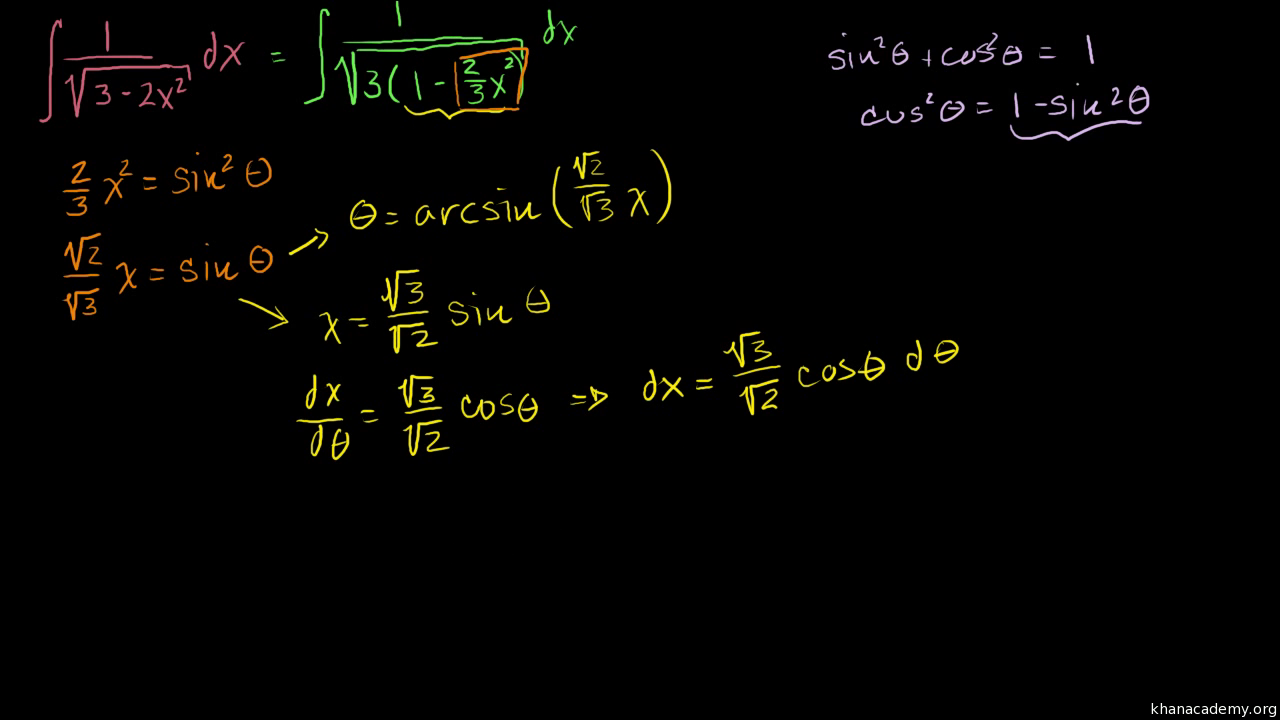 ∫ 1/√(3 - 2x²) dx = ∫ 1/√(3(1 - 2/3 x²)) dx
sin²θ + cos²θ = 1
cos²θ = 1 - sin²θ
2/3 x² = sin²θ
√2/√3 x = sin θ
θ = arcsin(√2/√3 x)
x = √3/√2 sin θ
dx/dθ = √3/√2 cosθ ⇒ dx = √3/√2 cosθ dθ
khanacademy.org